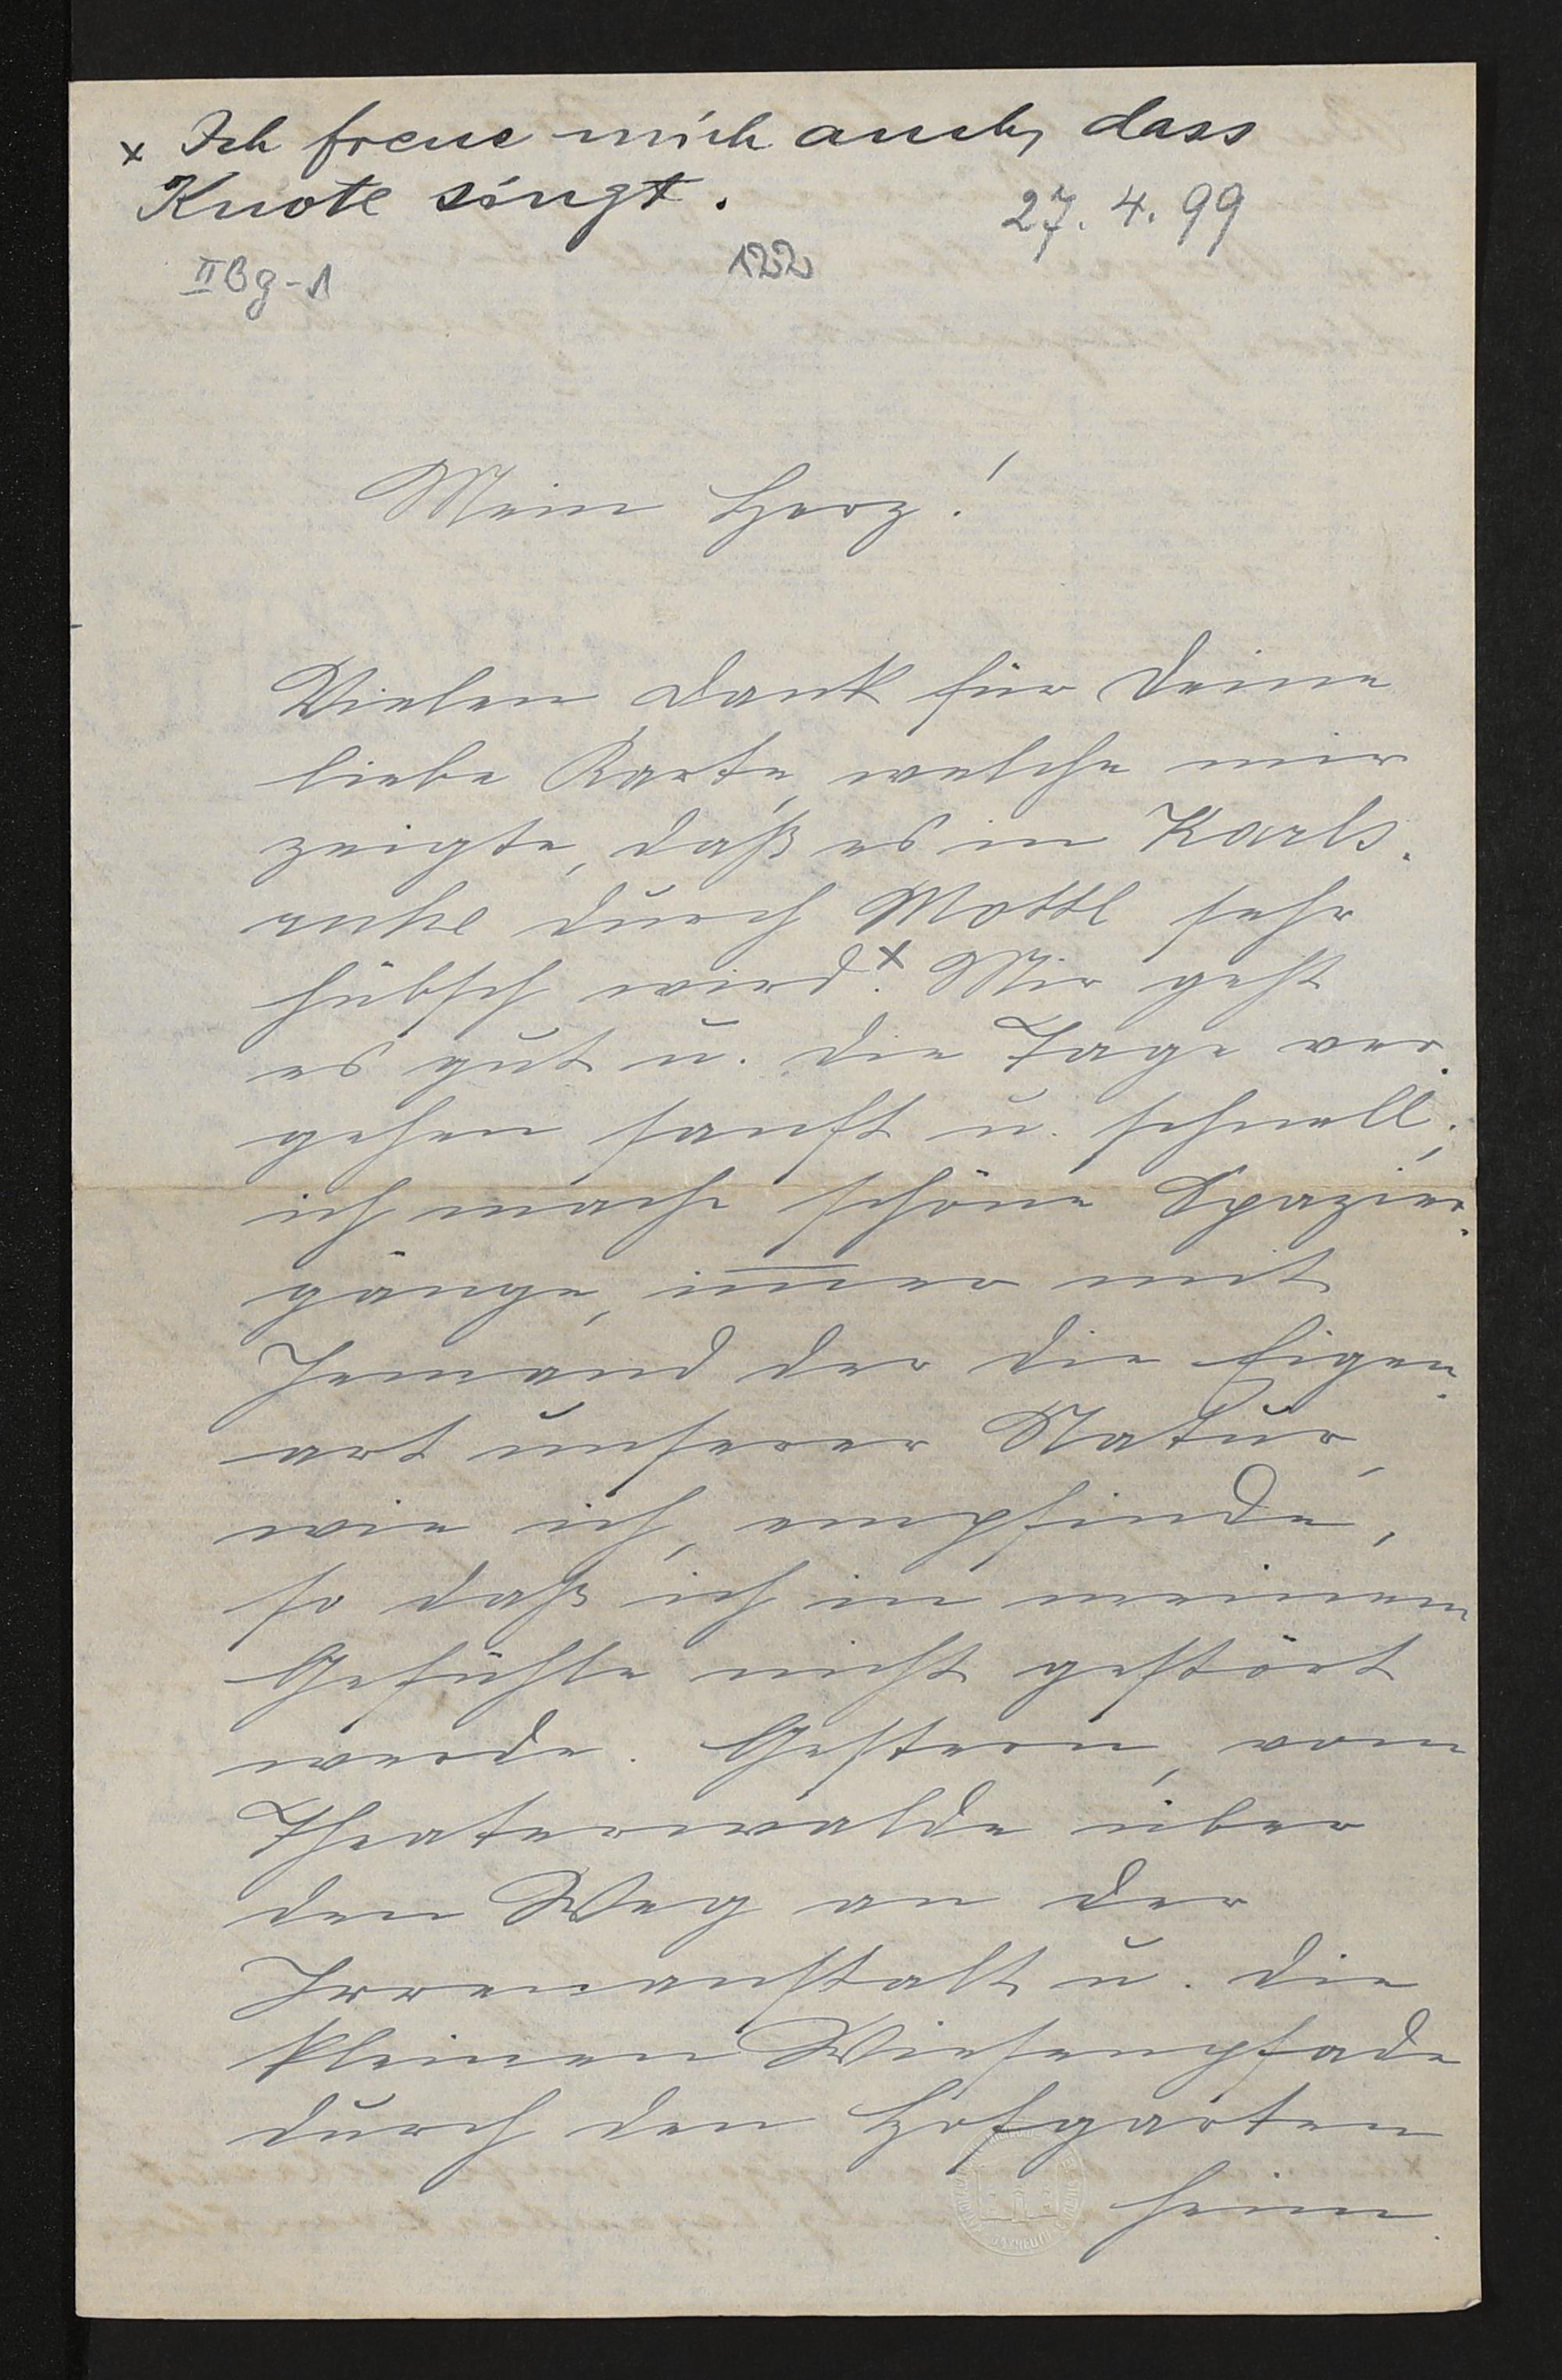 x Ich freue mich auch, dass
Knote singt.
27. 4. 99
IIBg-1
122
Mein Herz!
Vielen Dank für Deine
liebe Karte, welche mir
zeigte, daß es in Karls-
ruhe durch Mottl sehr
hübsch wird.x Mir geht
es gut u. die Tage ver-
gehen sanft u. schnell;
ich mache schöne Spazier-
gänge, im̅er mit
Jemand der die Eigen-
art unserer Natur,
wie ich, empfinde,
so daß ich in meinem
Gefühle nicht gestört
werde. Gestern, vom
Theaterwalde über
den Weg an der
Irrenanstalt u. die
kleinen Wiesenpfade
durch den Hofgarten
heim.